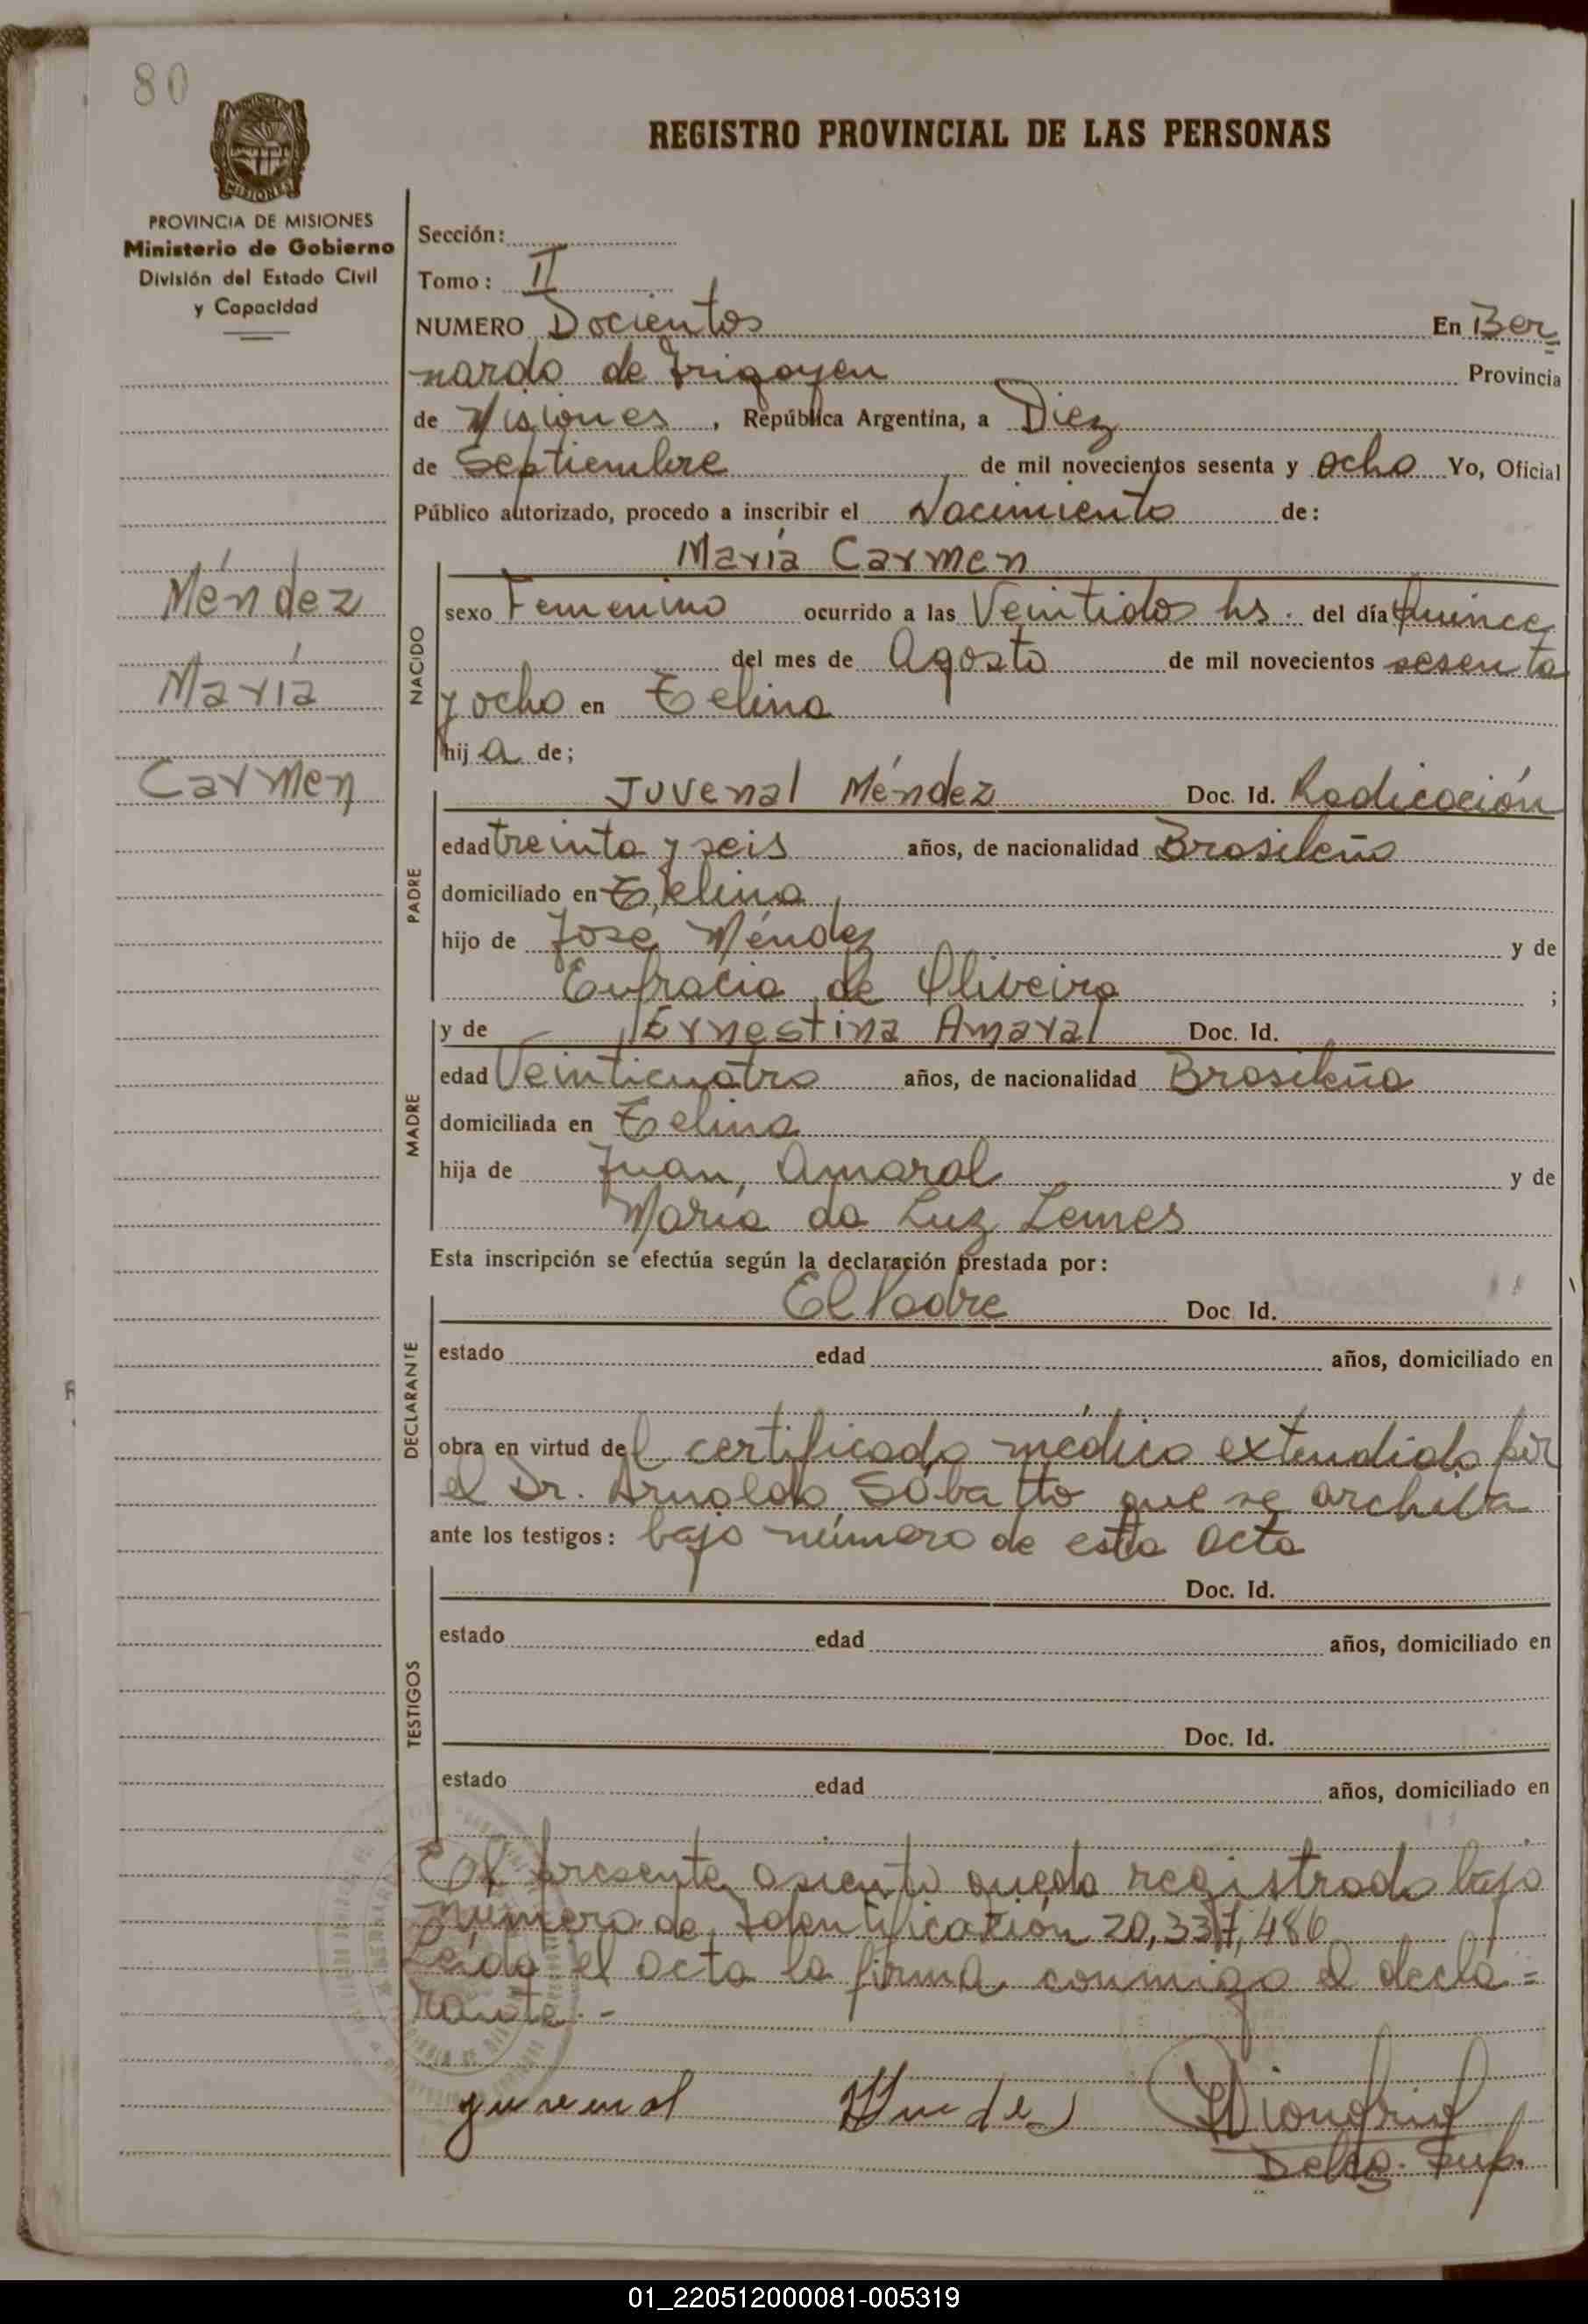 80
REGISTRO PROVINCIAL DE LAS PERSONAS
MISIONES
PROVINCIA DE MISIONES
Ministerio de Gobierno
División del Estado Civil
y Capacidad
Sección:
Tomo: II
NUMERO Docientos En Ber
nardo de Irigoyen Provincia
de Misiones, República Argentina, a Diez
de Septiembre de mil novecientos sesenta y ocho Yo, Oficial
Público autorizado, procedo a inscribir el Nacimiento de:
Méndez
María
Carmen
NACIDO
María Carmen
sexo Femenino ocurrido a las Veintidos hs. del día Quince
del mes de Agosto de mil novecientos sesenta
y ocho en Celina
hija de;
PADRE
Juvenal Méndez Doc. Id. Radicación
edad treinta y seis años, de nacionalidad Brasileño
domiciliado en Celina
hijo de José Méndez y de
Eufracia de Oliveira ;
MADRE
y de Ernestina Amaral Doc. Id.
edad Veinticuatro años, de nacionalidad Brasileña
domiciliada en Celina
hija de Juan Amaral y de
María da Luz Lemes
Esta inscripción se efectúa según la declaración prestada por:
DECLARANTE
El Padre Doc. Id.
estado edad años, domiciliado en
obra en virtud del certificado médico extendido por
el Dr. Arnoldo Sábatto que se archiva
ante los testigos: bajo número de esta acta
TESTIGOS
Doc. Id.
estado edad años, domiciliado en
Doc. Id.
estado edad años, domiciliado en
El presente asiento queda registrado bajo
número de Identificación 20,337,486
Leída el acta la firma conmigo el decla=
rante.-
Juvenal Mendes
Deleg. Sup.
01_220512000081-005319